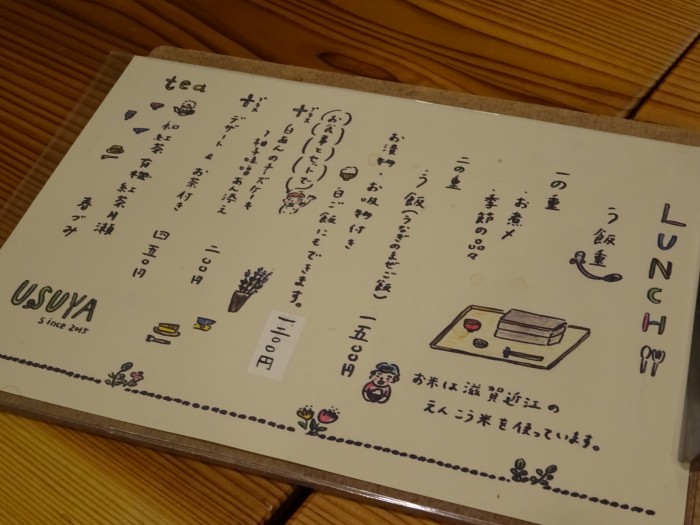 LUNCH
う飯重
一の重
・お煮〆
・季節の品々
二の重
う飯(うなぎのまぜご飯)
お漬物・お吸物付き
一五〇〇円
白ご飯にもできます。
(お食事とセットで)
プラス
白あんのチーズケーキ
柚子味噌あん添え
デザート & お茶付き
プラス
一二〇〇円
二〇〇円
tea
和紅茶 有機紅茶月ヶ瀬
春づみ
四五〇円
お米は滋賀近江の
えんこう米を使っています。
USUYA
since 2015